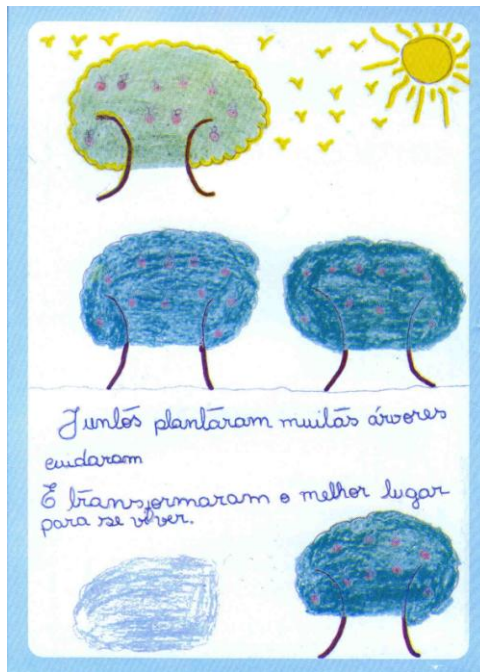 Juntos plantaram muitas árvores
cuidaram
E transformaram o melhor lugar
para se viver.